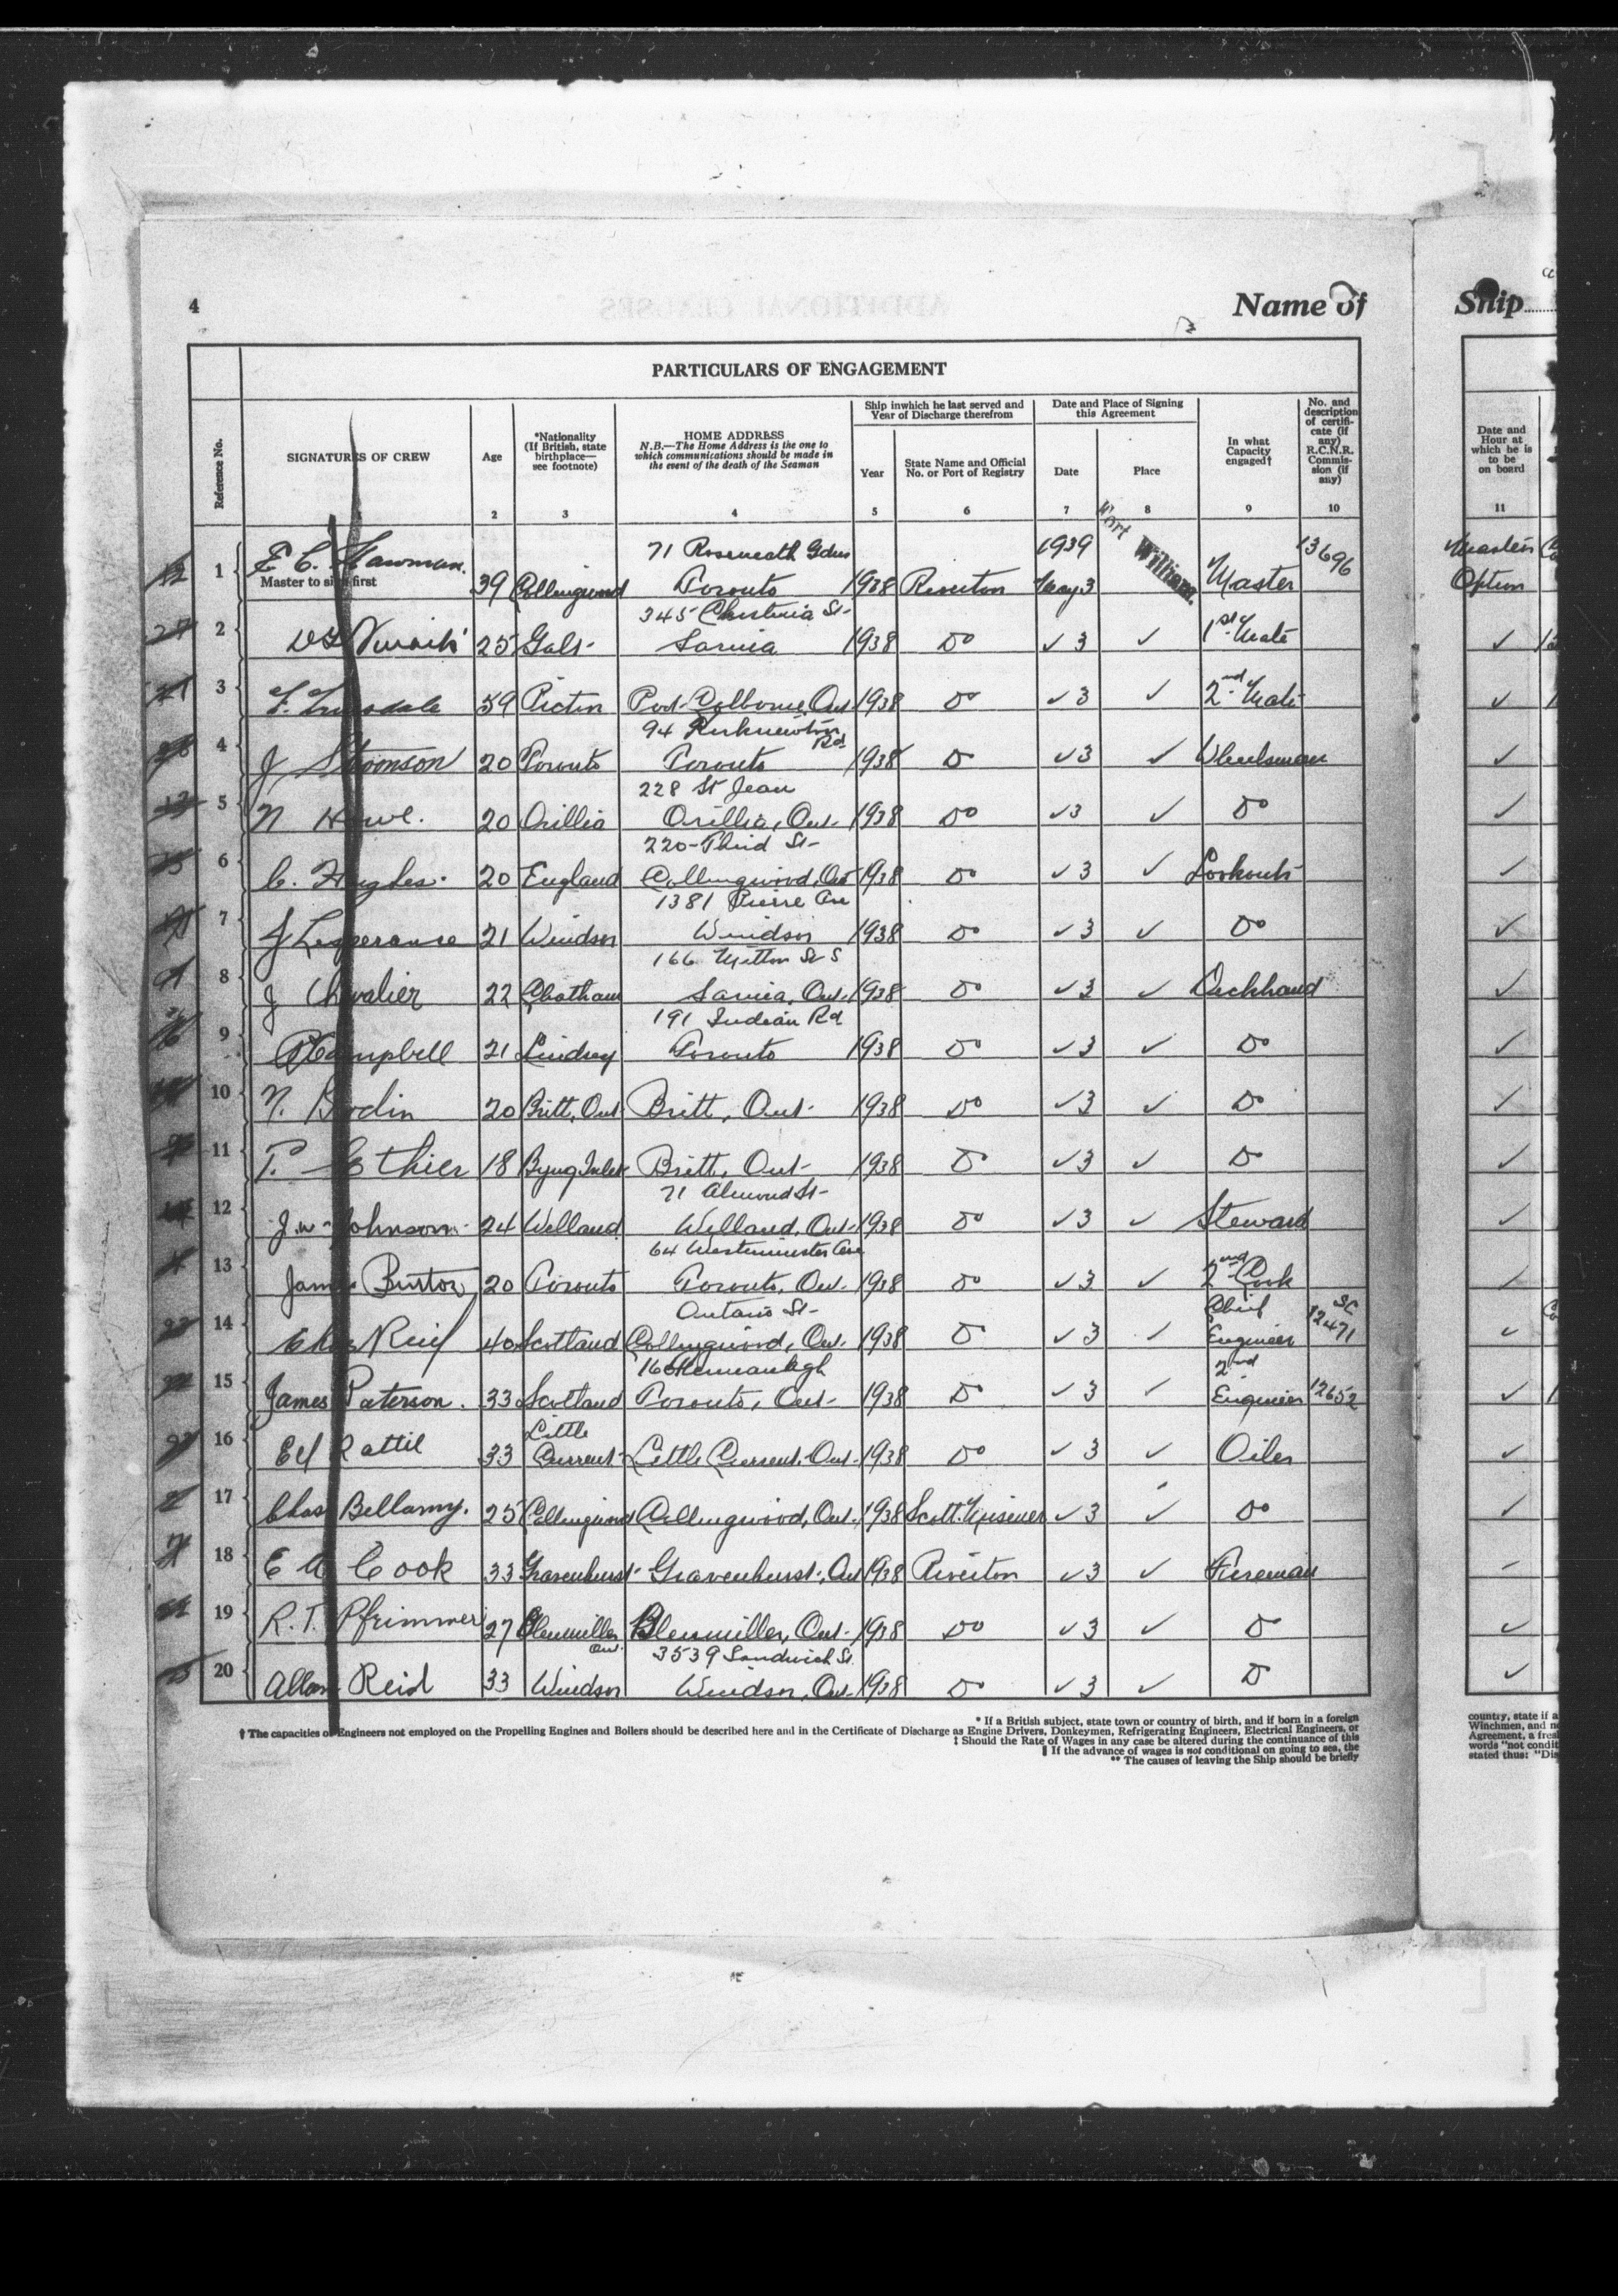 4
Name of
Ship
PARTICULARS OF ENGAGEMENT
Reference No.
SIGNATURES OF CREW
Age
*Nationality
(If British, state
birthplace—
see footnote)
HOME ADDRESS
N.B.—The Home Address is the one to
which communications should be made in
the event of the death of the Seaman
Ship inwhich he last served and
Year of Discharge therefrom
Year
State Name and Official
No. or Port of Registry
Date and Place of Signing
this Agreement
Date
Place
In what
Capacity
engaged†
No. and
description
of certifi-
cate (if
any)
R.C.N.R.
Commis-
sion (if
any)
Date and
Hour at
which he is
to be
on board
2 3 4 5 6 7 8 9 10 11
71 Roseneath Gdns 1939 Fort William. 13696 Masters
1 E C. Master to sign first 39 Collingwood Toronto 1938 Riverton May 3 Master Option
345 Christina St-
2 25 Galt- Sarnia 1938 Do ✓ 3 ✓ 1st Mate ✓
3 59 Picton Port Colborne, Ont 1938 Do ✓ 3 ✓ 2nd Mate ✓
94 Rd
4 J 20 Toronto Toronto 1938 Do ✓ 3 ✓ Wheelsman ✓
228 St Jean
5 N 20 Orillia Orillia, Ont- 1938 Do ✓ 3 ✓ Do ✓
220-Third St-
6 C. Hughes. 20 England Collingwood, Ont 1938 Do ✓ 3 ✓ Lookout ✓
1381 Pierre Ave
7 J Lesperance 21 Windsor Windsor 1938 Do ✓ 3 ✓ Do ✓
166 Mitton St S
8 J Chevalier 22 Chatham Sarnia, Ont. 1938 Do ✓ 3 ✓ Deckhand ✓
191 Indian Rd
9 Campbell 21 Lindsey Toronto 1938 Do ✓ 3 ✓ Do ✓
10 N. Bodin 20 Britt, Ont Britt, Ont- 1938 Do ✓ 3 ✓ Do ✓
11 T. Ethier 18 Byng Inlet Britt, Ont- 1938 Do ✓ 3 ✓ Do ✓
71 Almond St-
12 J.W. Johnson 24 Welland Welland, Ont- 1938 Do ✓ 3 ✓ Steward ✓
64 Westminster Ave
13 James Burton 20 Toronto Toronto, Ont. 1938 Do ✓ 3 ✓ 2nd Cook ✓
Ontario St- Chief SC
14 Chas 40 Scotland Collingwood, Ont. 1938 Do ✓ 3 ✓ Engineer 12471 ✓
2nd
15 James Paterson. 33 Scotland Toronto, Ont- 1938 Do ✓ 3 ✓ Engineer 12652 ✓
Little
16 Ed Rattie 33 Current- Little Current, Ont- 1938 Do ✓ 3 ✓ Oiler ✓
17 Chas Bellamy. 25 Collingwood Collingwood, Ont. 1938 Scott Misener ✓ 3 ✓ Do ✓
18 E Cook 33 Gravenhurst- Gravenhurst, Ont 1938 Riverton ✓ 3 ✓ Fireman
19 R.T. Pfrimmer 27 Glenmiller Ont. Glenmiller, Ont- 1938 Do ✓ 3 ✓ Do ✓
3539 Sandwich St.
20 Allan Reid 33 Windsor Windsor, Ont. 1938 Do ✓ 3 ✓ Do ✓
* If a British subject, state town or country of birth, and if born in a foreign
† The capacities of Engineers not employed on the Propelling Engines and Boilers should be described here and in the Certificate of Discharge as Engine Drivers, Donkeymen, Refrigerating Engineers, Electrical Engineers, or
‡ Should the Rate of Wages in any case be altered during the continuance of this
If the advance of wages is not conditional on going to sea, the
** The causes of leaving the Ship should be briefly
country, state if a
Winchmen, and
Agreement, a
words "not
stated thus: